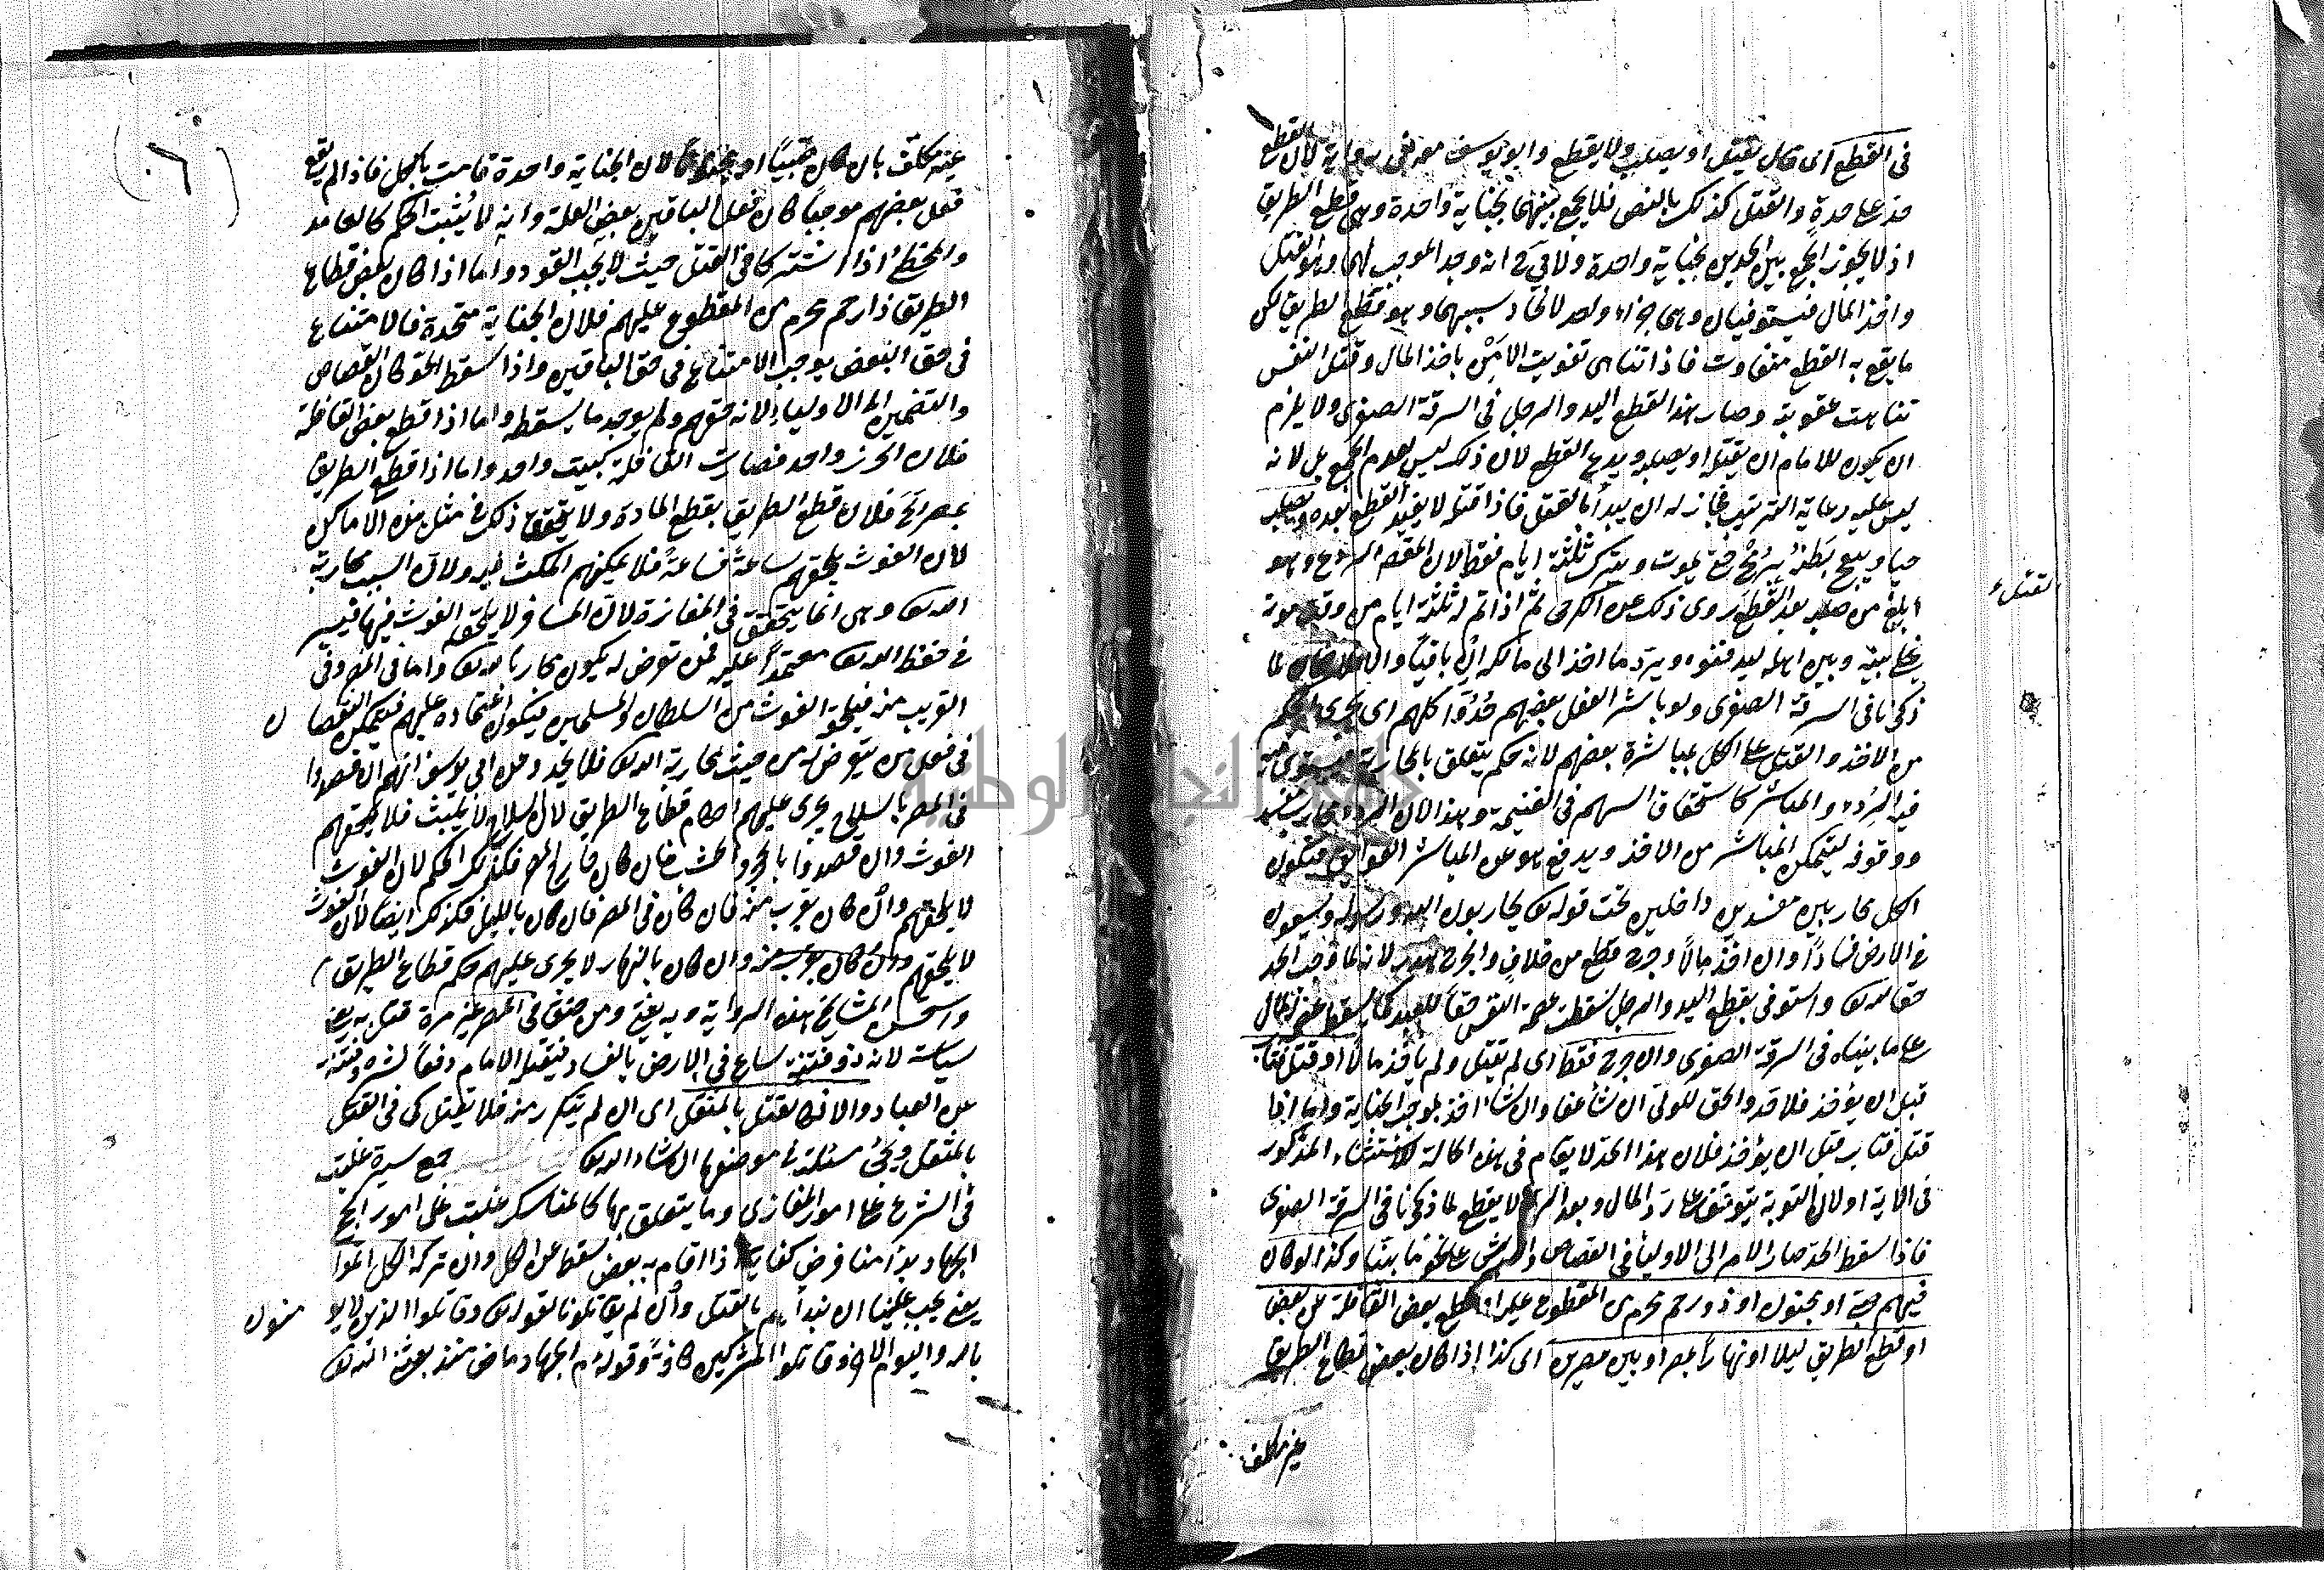 في القطع اى قال يقتل او يصلب ولا يقطع وابو يوسف معه فى رواية لان القطع
حد على حدة والقتل كذلك بالنص فلا يجمع بينهما بجناية واحدة وهى قطع الطريق
اذ لا يجوز الجمع بين الحدين بجناية واحدة ولابي ح انه وجد الموجب لهما وهو القتل
واخذ المال فيستوفيان وهما جزاء واحد لاتحاد سببهما وهو قطع الطريق لكن
ما يقع به القطع متفاوت فاذا تناهى تفويت الامن باخذ المال وقتل النفس
تناهت عقوبته وصار هذا كقطع اليد والرجل فى السرقة الصغرى ولا يلزم
ان يكون للامام ان يقتله او يصلبه ويدع القطع لان ذلك ليس لعدم الجمع بل لانه
ليس عليه رعاية الترتيب فجاز له ان يبدأ بالقتل فاذا قتله لا يفيد القطع بعده ويصلب
حيا ويبعج بطنه برمح حتى يموت ويترك ثلثة ايام فقط لان المقصود الردع وهو
القتل
ابلغ من صلبه بعد القطع روى ذلك عن الكرخى ثم اذا تم له ثلثة ايام من وقت موته
يخلى بينه وبين اهله ليدفنوه ويرد ما اخذ الى مالكه ان باقيا والا لا ضمان لما
ذكرنا فى السرقة الصغرى ولو باشر الفعل بعضهم حُدّوا كلهم اى يجرى الحكم
من الاخذ والقتل على الكل بمباشرة بعضهم لانه حكم يتعلق بالمحاربة فيستوى
فيه الردء والمباشر كاستحقاق السهم فى الغنيمة وهذا لان الردء محارب
ووقوفه ليتمكن المباشر من الاخذ ويدفع هو عن المباشر العوائق فيكون
الكل محاربين مفسدين داخلين تحت قوله تع يحاربون الله ورسوله ويسعون
فى الارض فسادا وان اخذ مالا وجرح قطع من خلاف والجرح هدر لانه لما وجب الحد
حقا لله تع واستوفى بقطع اليد والرجل سقطت عصمة النفس حقا للعبد كما يسقط عصمة المال
على ما بيناه فى السرقة الصغرى وان جرح فقط اى لم يقتل ولم ياخذ مالا او قتل فتاب
قبل ان يؤخذ فلا حد والحق للولى ان شاء عفا وان شاء اخذ بموجب الجناية واما اذا
قتل فتاب قبل ان يؤخذ فلان هذا الحد لا يقام فى هذه الحالة للاستثناء المذكور
فى الاية او لان التوبة يتوقف على رد المال وبعد الرد لا يقطع لما ذكرنا فى السرقة الصغرى
فاذا سقط الحد صار الامر الى الاولياء فى القصاص والارش على نحو ما بينا وكذا لو كان
فيهم صبى او مجنون او ذو رحم محرم من المقطوع عليه او قطع بعض القافلة على بعض
او قطع الطريق ليلا او نهارا بمصر او بين مصرين اى كذا اذا كان بعض قطاع الطريق
غير مكلف
(٦٠)
غير مكلف بان كان صبيا او مجنونا لان الجناية واحدة قامت بالكل فاذا لم يقع
فعل بعضهم موجبا كان فعل الباقين بعض العلة وانه لا يُثبت الحكم كالعامد
والمخطئ اذا اشتركا فى القتل حيث لا يجب القود واما اذا كان بعض قطاع
الطريق ذا رحم محرم من المقطوع عليهم فلان الجناية متحدة فالامتناع
فى حق البعض يوجب الامتناع فى حق الباقين واذا سقط الحد كان القصاص
والتضمين الى الاولياء لانه حقهم ولم يوجد ما يسقطه واما اذا قطع بعض القافلة
فلان الحرز واحد فصارت القافلة كبيت واحد واما اذا قطع الطريق
بمصر الخ فلان قطع الطريق بقطع المادة ولا يتحقق ذلك فى مثل هذه الاماكن
لان الغوث يلحقهم ساعة فساعة فلا يمكنهم المكث فيه ولان السبب محاربة
الله تع وهى انما يتحقق فى المفازة لان المسافر لا يلحقه الغوث فيها فيسير
فى حفظ الله تع معتمدا عليه فمن تعرض له يكون محاربا لله تع واما فى المصر وفى
القريب منه فيلحق الغوث من السلطان والمسلمين فيكون اعتماده عليهم فيتمكن النقصان
فى فعل من يتعرض له من حيث محاربة الله تع فلا يحد وعن ابى يوسف انهم ان قصدوا
فى المصر بالسلاح يجرى عليهم احكام قطاع الطريق لان السلاح لا يلبث فلا يلحقهم
الغوث وان قصدوا بالحجر والخشب فان كان خارج المصر فكذلك الحكم لان الغوث
لا يلحقهم وان كان بقرب منه فان كان فى المصر فان كان بالليل فكذلك ايضا لان الغوث
لا يلحقهم وان كان بقرب منه وان كان بالنهار لا يجرى عليهم حكم قطاع الطريق
واستحسن المشايخ هذه الرواية وبه يفتى ومن خنق فى المصر غير مرة قتل به يعنى
سياسة لانه ذو فتنة ساع فى الارض بالفساد فيقتله الامام دفعا لشره وفتنته
عن العباد والا فكالقتل بالمثقل اى ان لم يتكرر منه فلا يقتل كما فى القتل
بالمثقل ويجئ مسئلته فى موضعها ان شاء الله تع جمع سيرة غلبت
فى الشرع على امور المغازى وما يتعلق بها كالمناسك غلبت على امور الحج
الجهاد بدأ منا فرض كفاية اذا قام به بعض سقط عن الكل وان تركه الكل اثموا
يعنى يجب علينا ان نبدأهم بالقتل وان لم يقاتلونا لقوله تع وقاتلوا الذين لا يؤمنون
بالله واليوم الاخر وقاتلوا المشركين كافة وقوله عم الجهاد ماض منذ بعثنى الله تع